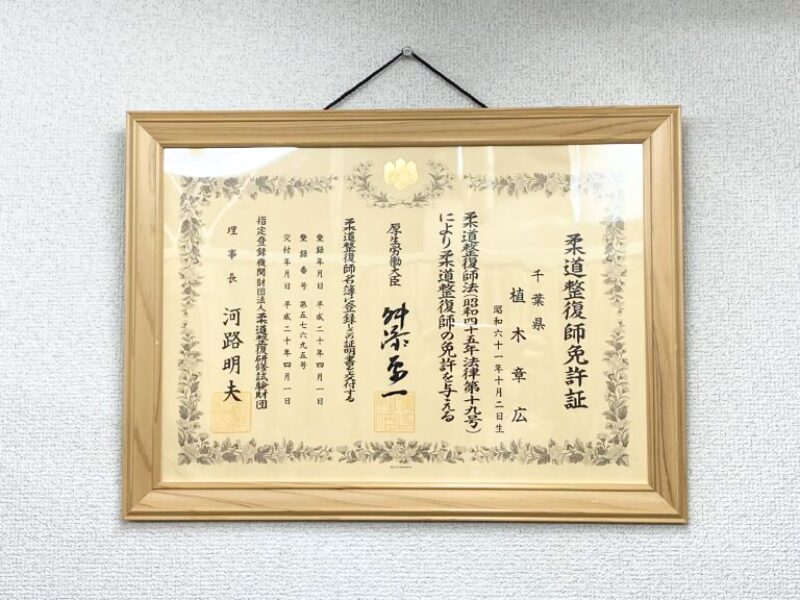 柔道整復師免許証
千葉県
植木章広
昭和六十一年十月二日生
柔道整復師法(昭和四十五年法律第十九号)
により柔道整復師の免許を与える
厚生労働大臣 舛添要一
柔道整復師名簿に登録しこの証明書を交付する
登録年月日 平成二十年四月一日
登録番号 第五七六九五号
交付年月日 平成二十年四月一日
指定登録機関財団法人柔道整復研修試験財団
理事長 河路明夫